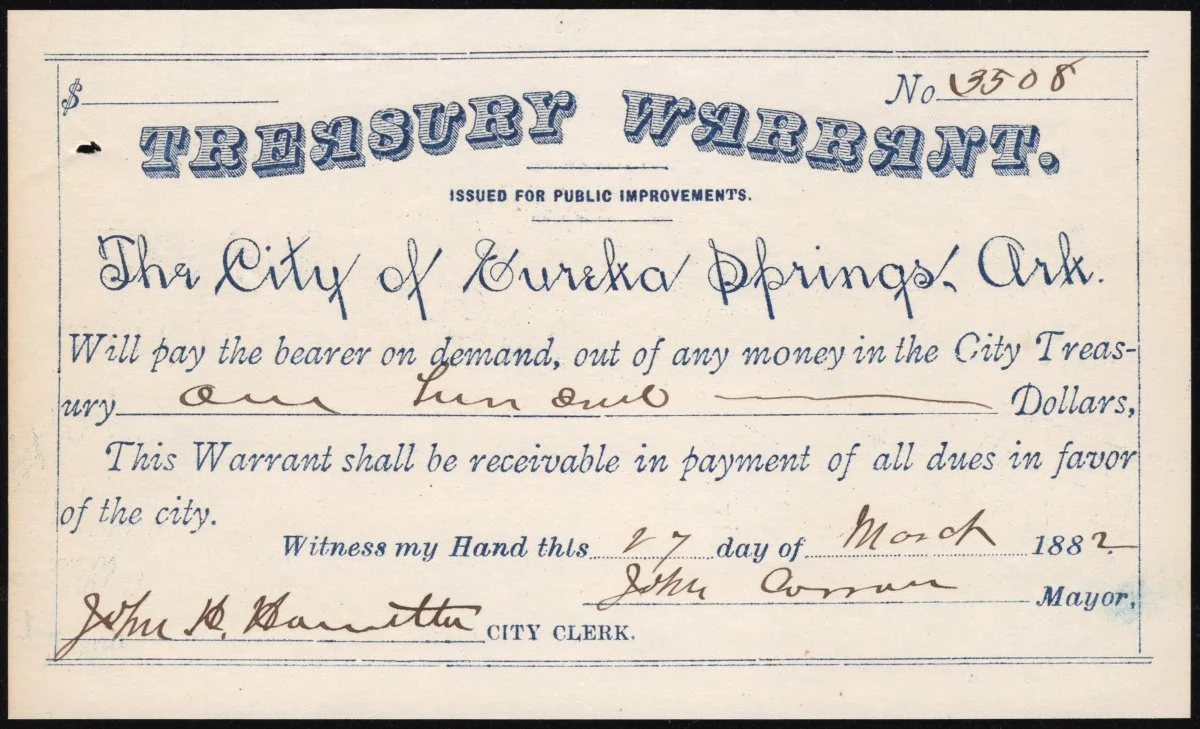 $ No 3508
TREASURY WARRANT.
ISSUED FOR PUBLIC IMPROVEMENTS.
The City of Eureka Springs, Ark.
Will pay the bearer on demand, out of any money in the City Treas-
ury one hundred Dollars,
This Warrant shall be receivable in payment of all dues in favor
of the city.
Witness my Hand this 27 day of March 1882
John Mayor,
John H. CITY CLERK.